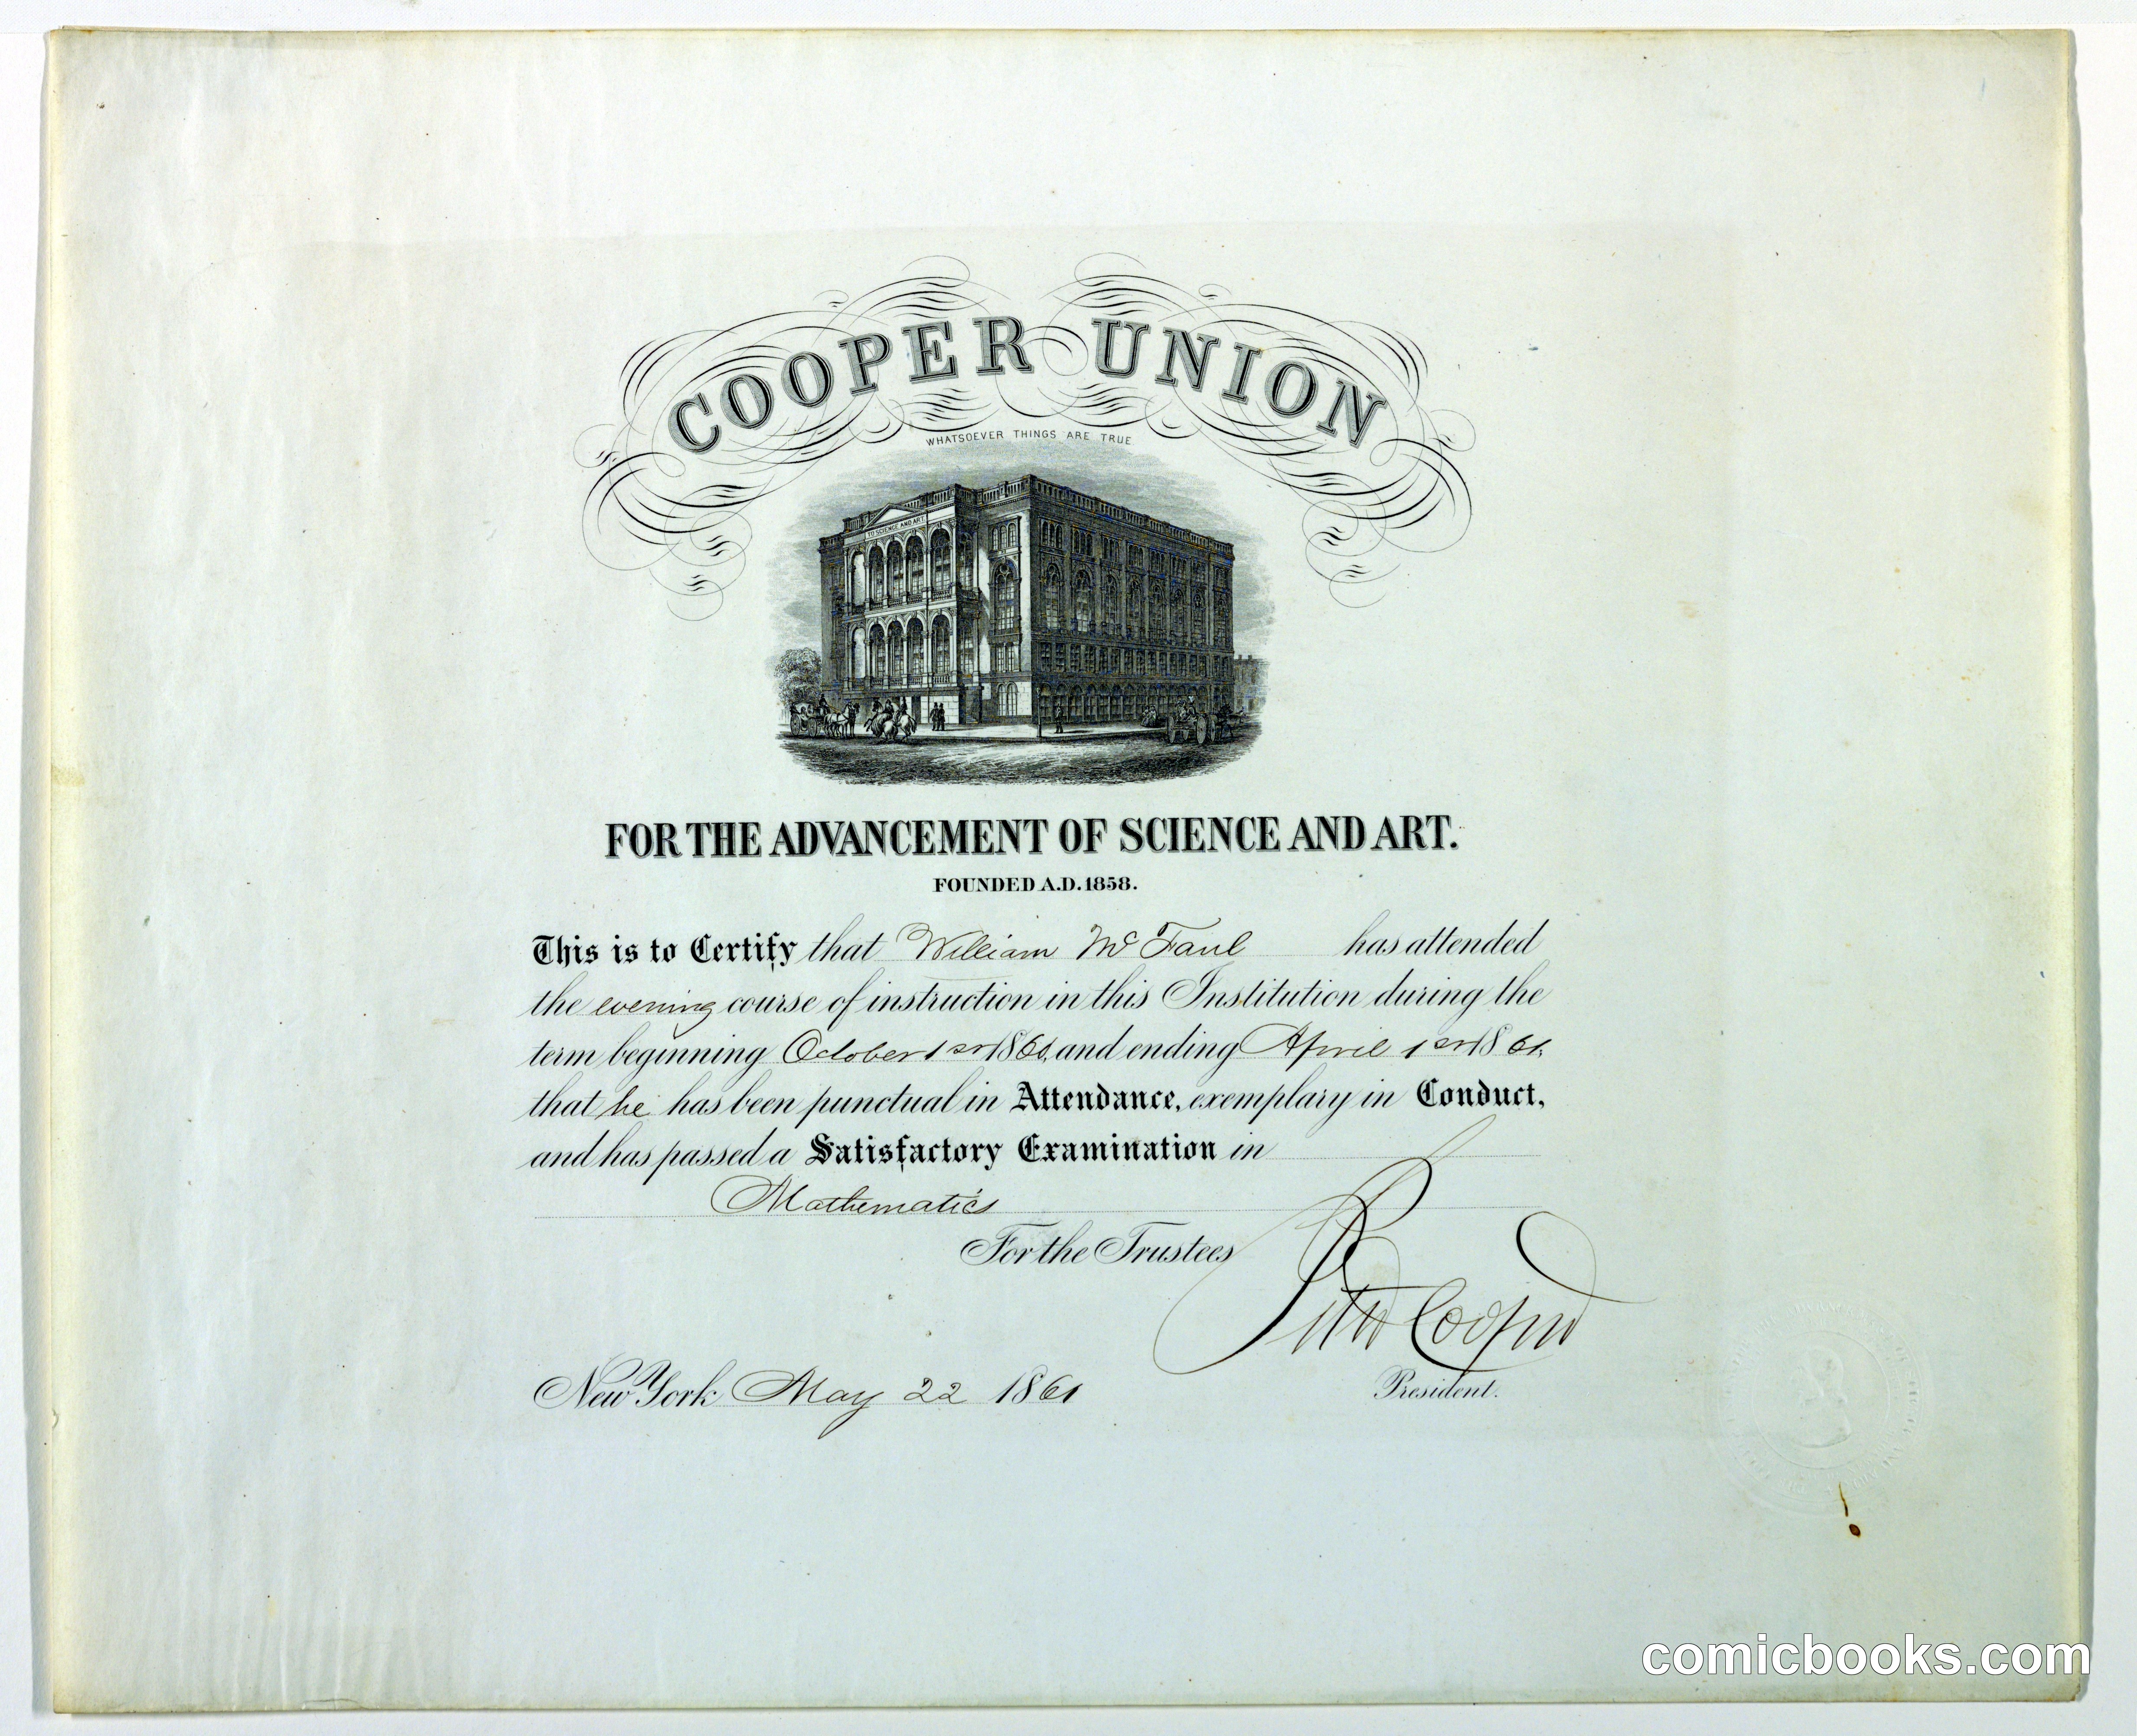 COOPER UNION
WHATSOEVER THINGS ARE TRUE
TO SCIENCE AND ART
FOR THE ADVANCEMENT OF SCIENCE AND ART.
FOUNDED A.D. 1858.
This is to Certify that William Mc Faul has attended
the evening course of instruction in this Institution during the
term beginning October 1st 1860, and ending April 1st 1861,
that he has been punctual in Attendance, exemplary in Conduct,
and has passed a Satisfactory Examination in
Mathematics
For the Trustees
Peter Cooper
New York May 22 1861
President.
comicbooks.com